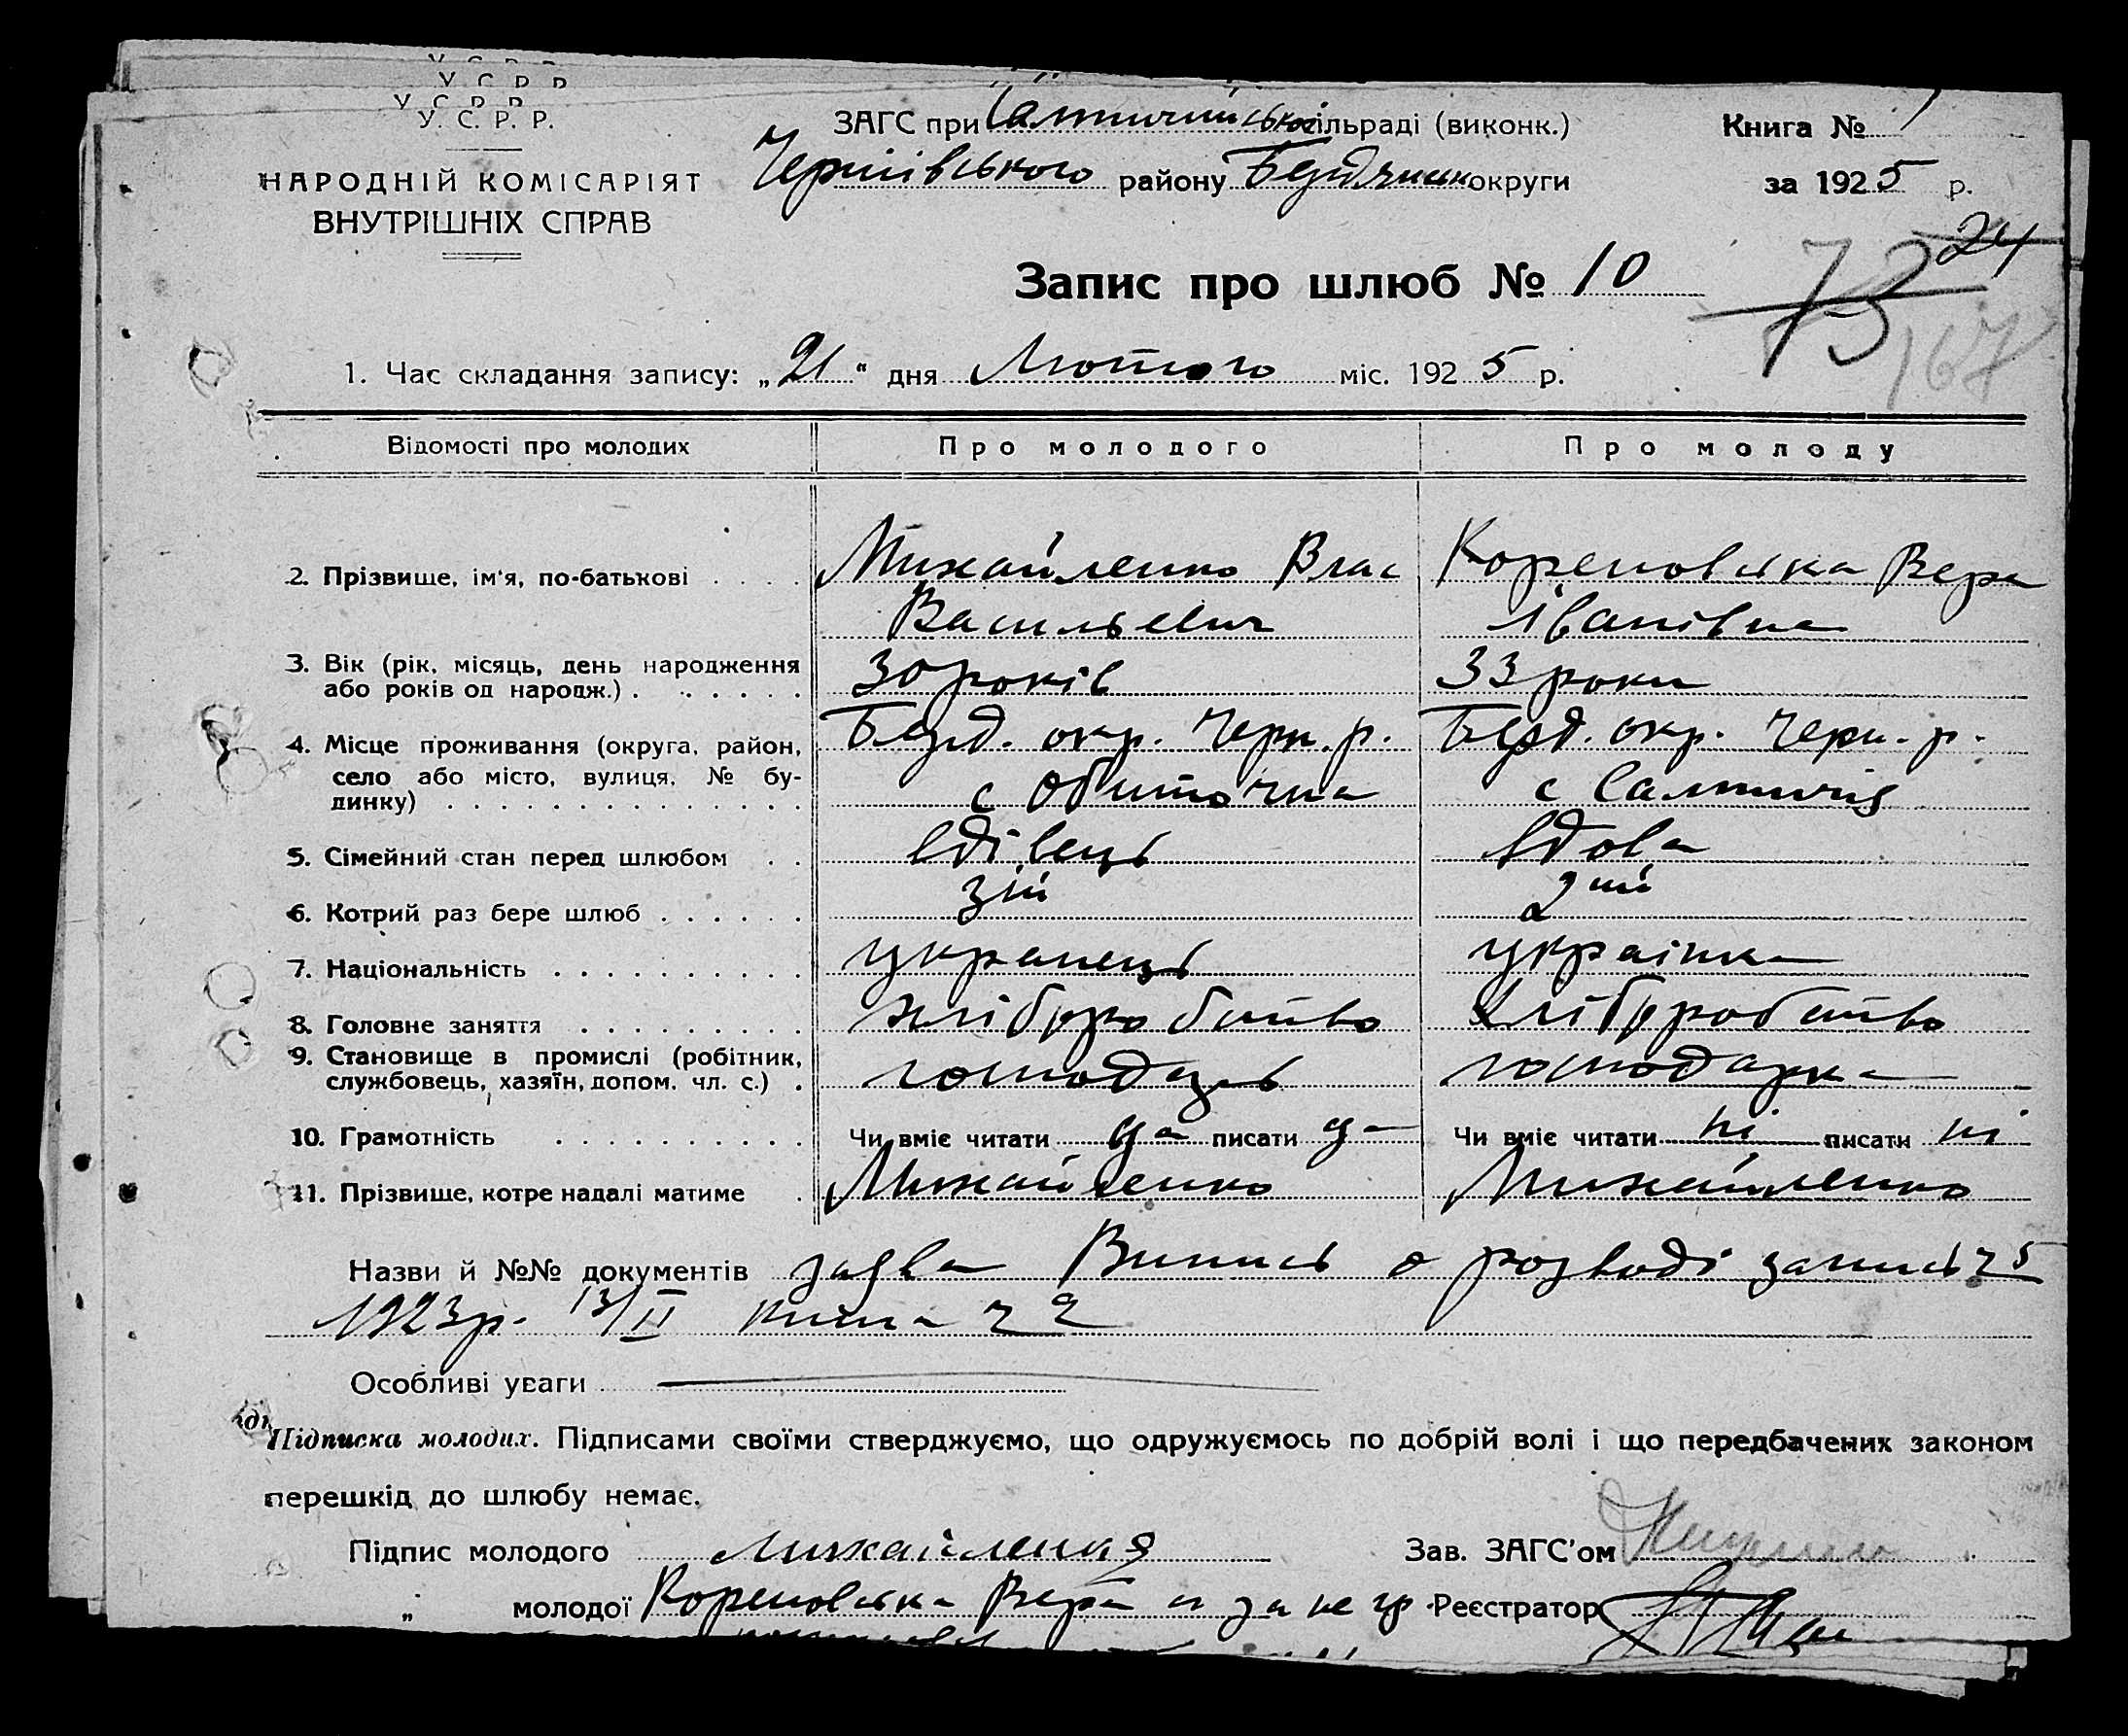 У. С. Р. Р.
НАРОДНІЙ КОМІСАРІЯТ
ВНУТРІШНІХ СПРАВ
ЗАГС при Салтичийській сільраді (виконк.)
Чернівського району Бердянськ округи
Книга № 1
за 1925 р.
24
Запис про шлюб № 10
73
167
1. Час складання запису: „21“ дня Лютого міс. 1925 р.
Відомості про молодих Про молодого Про молоду
2. Прізвище, ім'я, по-батькові . . . . Михайленко Влас Кореновська Вера
Васильевич Іванівна
3. Вік (рік, місяць, день народження 30 років 33 роки
або років од народж.) . . . . . . .
4. Місце проживання (округа, район, Берд. окр. Черн. р. Берд. окр. Черн. р.
село або місто, вулиця, № бу- с Обиточна с Салтичія
динку) . . . . . . . . . . . . . .
5. Сімейний стан перед шлюбом . . вдівець вдова
6. Котрий раз бере шлюб . . . . . . 3ій 2ий
7. Національність . . . . . . . . . . укранець українка
8. Головне заняття . . . . . . . . . хліборобство Хліборобство
9. Становище в промислі (робітник, господарь господарка
службовець, хазяїн, допом. чл. с.) .
10. Грамотність . . . . . . . . . . Чи вміє читати да писати да Чи вміє читати ні писати ні
11. Прізвище, котре надалі матиме . Михайленко Михайленко
Назви й №№ документів заява Випись о розводі запись ч 5
1923р. 13/II книга ч 2
Особливі уваги
Підписка молодих. Підписами своїми стверджуємо, що одружуємось по добрій волі і що передбачених законом
перешкід до шлюбу немає.
Підпис молодого Михайленко Зав. ЗАГС'ом
„ молодої Кореновська Вера а за не гр Реєстратор